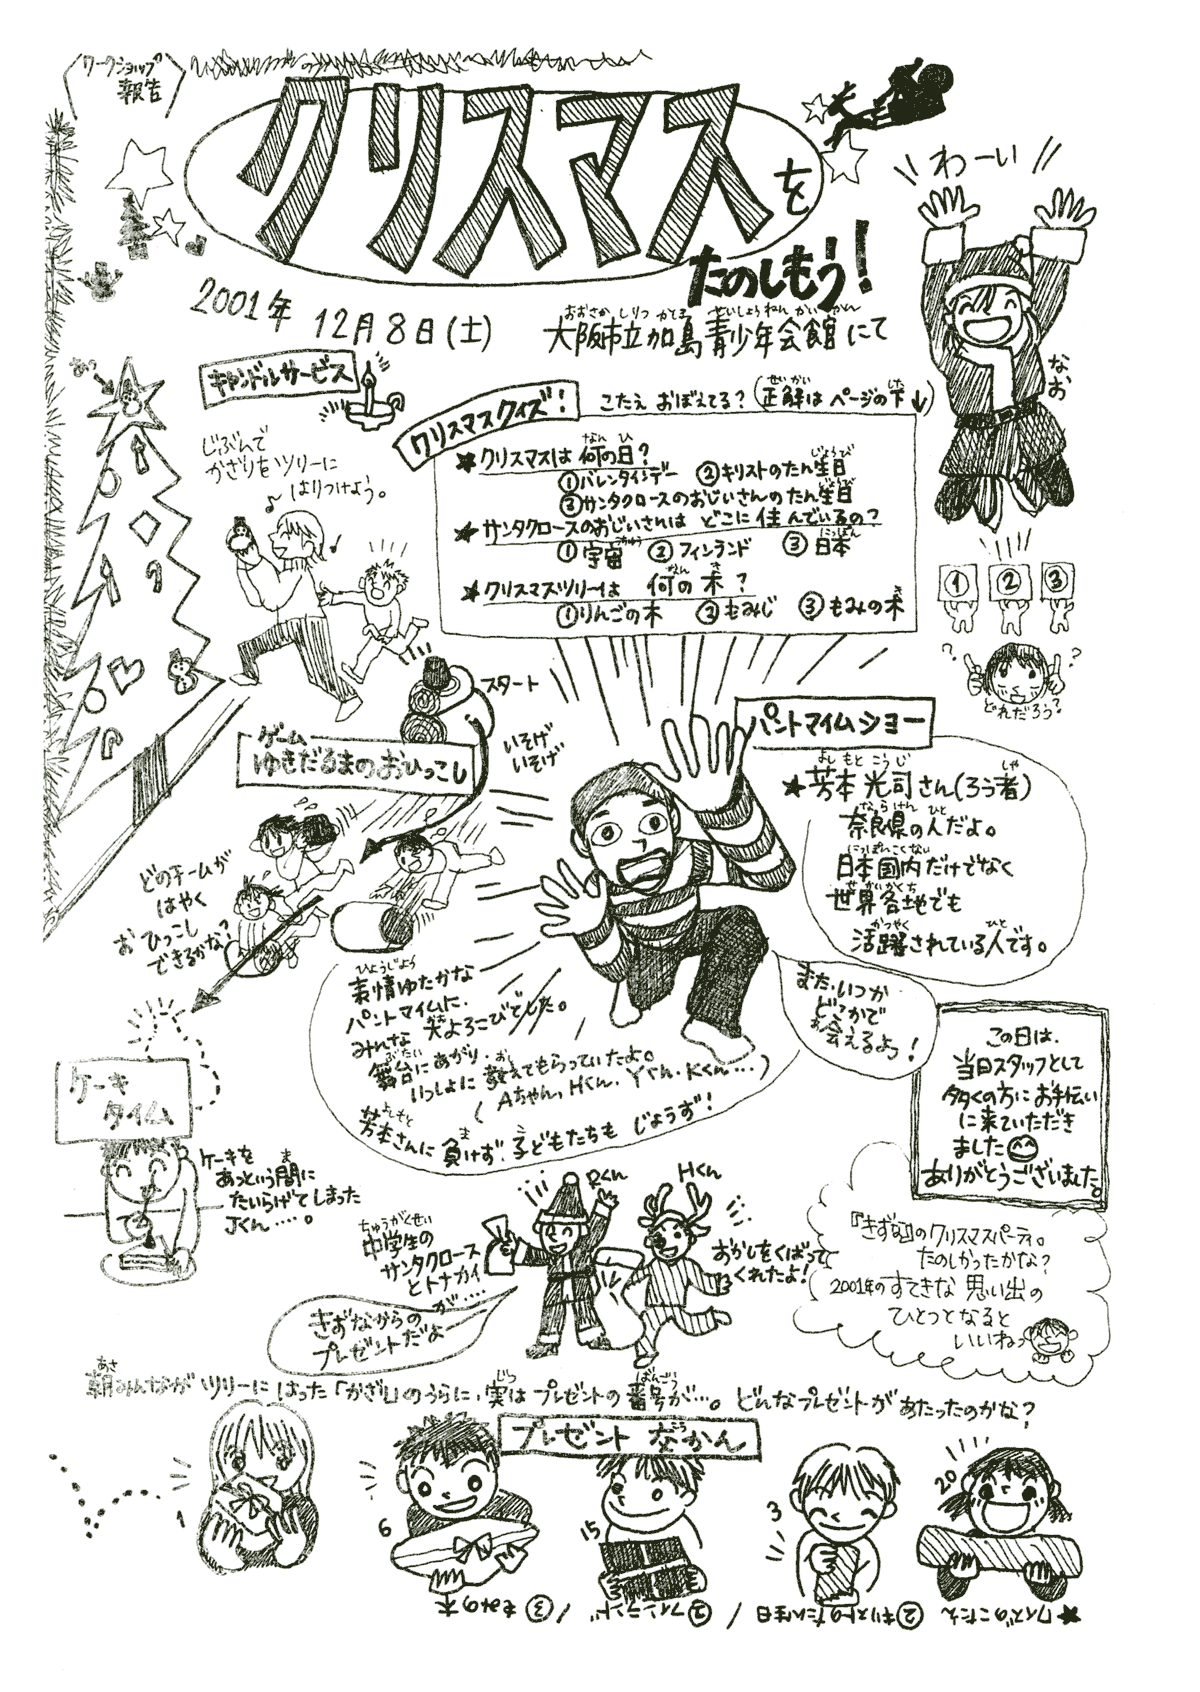 ワークショップ
報告
クリスマスを
たのしもう！
2001年 12月8日(土)
おおさか しりつ かしま せいしょうねん かいかん
大阪市立加島青少年会館にて
わーい
なお
キャンドルサービス
じぶんで
かざりをツリーに
はりつけよう。
クリスマスクイズ！
こたえ おぼえてる？(正解はページの下↓)
★クリスマスは何の日？
①バレンタインデー ②キリストのたん生日
③サンタクロースのおじいさんのたん生日
★サンタクロースのおじいさんは どこに住んでいるの？
①宇宙 ②フィンランド ③日本
★クリスマスツリーは 何の木？
①りんごの木 ②もみじ ③もみの木
① ② ③
? ?
どれだろう？
スタート
いそげ
いそげ
ゲーム
ゆきだるまのおひっこし
どのチームが
はやく
おひっこし
できるかな？
パントマイムショー
よしもと こうじ しゃ
★芳本光司さん(ろう者)
ならけん ひと
奈良県の人だよ。
にっぽんこくない
日本国内だけでなく
せかいかくち
世界各地でも
かつやく ひと
活躍されている人です。
また、いつか
どこかで
お会えるよう！
ひょうじょう
表情ゆたかな
パントマイムに、
みんな大よろこびでした。
ぶたい おし
舞台にあがり、
いっしょに教えてもらっていたよ。
(Aちゃん、Hくん、Yくん、Kくん…)
よしもと ま
芳本さんに負けず、子どもたちもじょうず！
この日は、
当日スタッフとして
多くの方にお手伝い
に来ていただき
ました
ありがとうございました。
ケーキ
タイム
ケーキを
あっという間に
たいらげてしまった
Jくん…。
ちゅうがくせい
中学生の
サンタクロース
とトナカイ
が…
Rくん
Hくん
おかしをくばって
くれたよ！
きずなからの
プレゼントだよ
『きずな』のクリスマスパーティ。
たのしかったかな？
2001年のすてきな思い出の
ひとつとなると
いいねっ
あさ じつ ばんごう
朝みんながツリーにはった「かざし」のうらに、実はプレゼントの番号が…。どんなプレゼントがあたったのかな？
プレゼントなかん
1
6
15
3
20
★クイズのこたえ ②キリストのたん生日 / ②フィンランド / ③もみの木